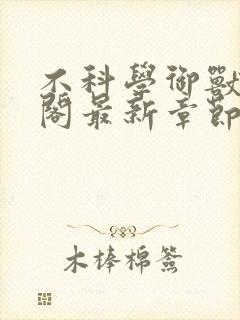 不科學御獸
閣最新章節
木棒棉簽